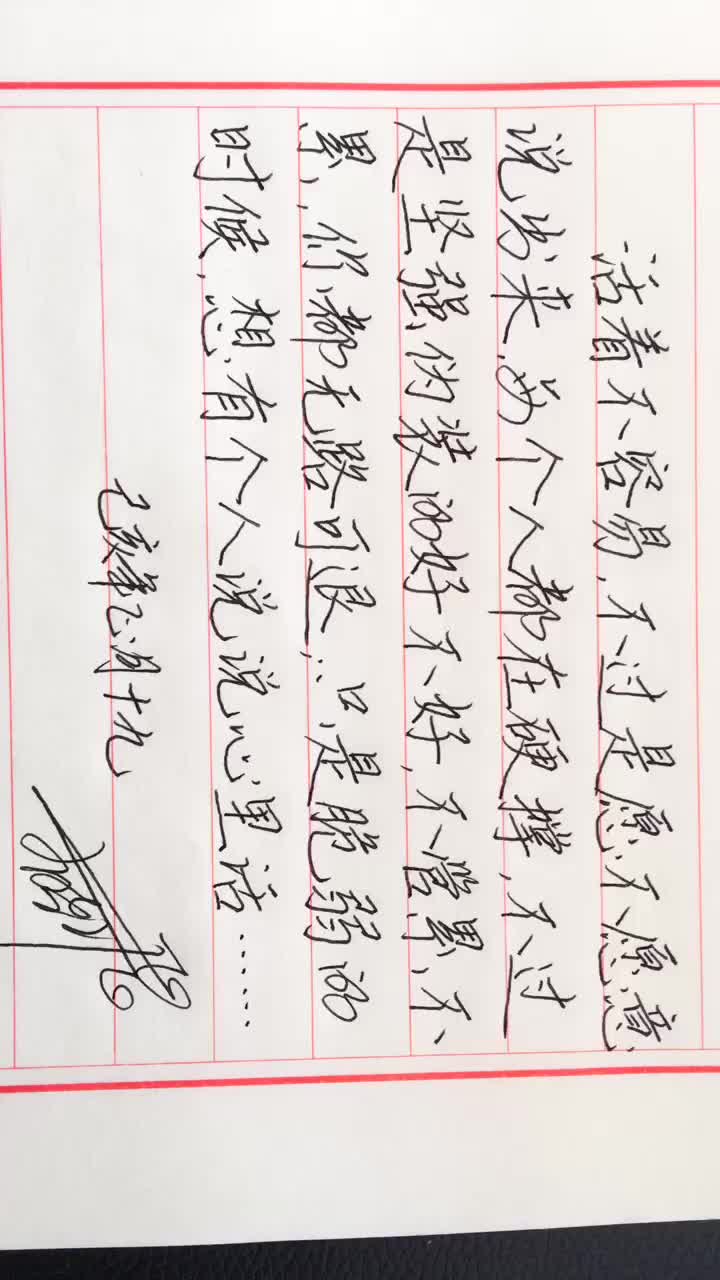 活着不容易，不过是愿不愿意
说出来，每个人都在硬撑，不过
是坚强伪装的好不好，不管累不
累，们都无路可退，只是脆弱的
时候，想有个人说说心里话……
己亥年正月十九